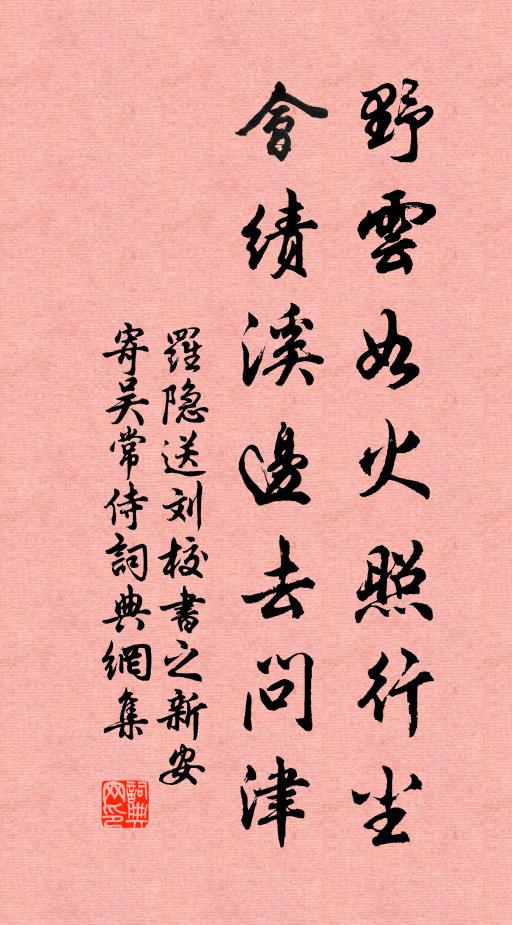 野雲如火照行尘
會績溪邊去問津
羅隐送刘校書之新安
寄吴常侍詞典網集
詞典
网印